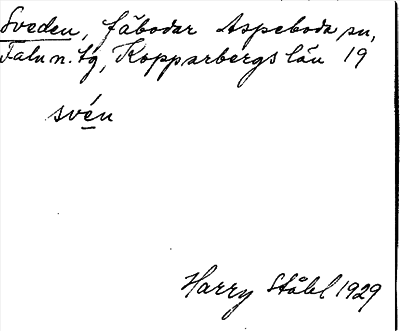 Sveden, fäbodar Aspeboda sn,
Falu n. tg, Kopparbergs län 19
svén
Harry Ståhl 1929